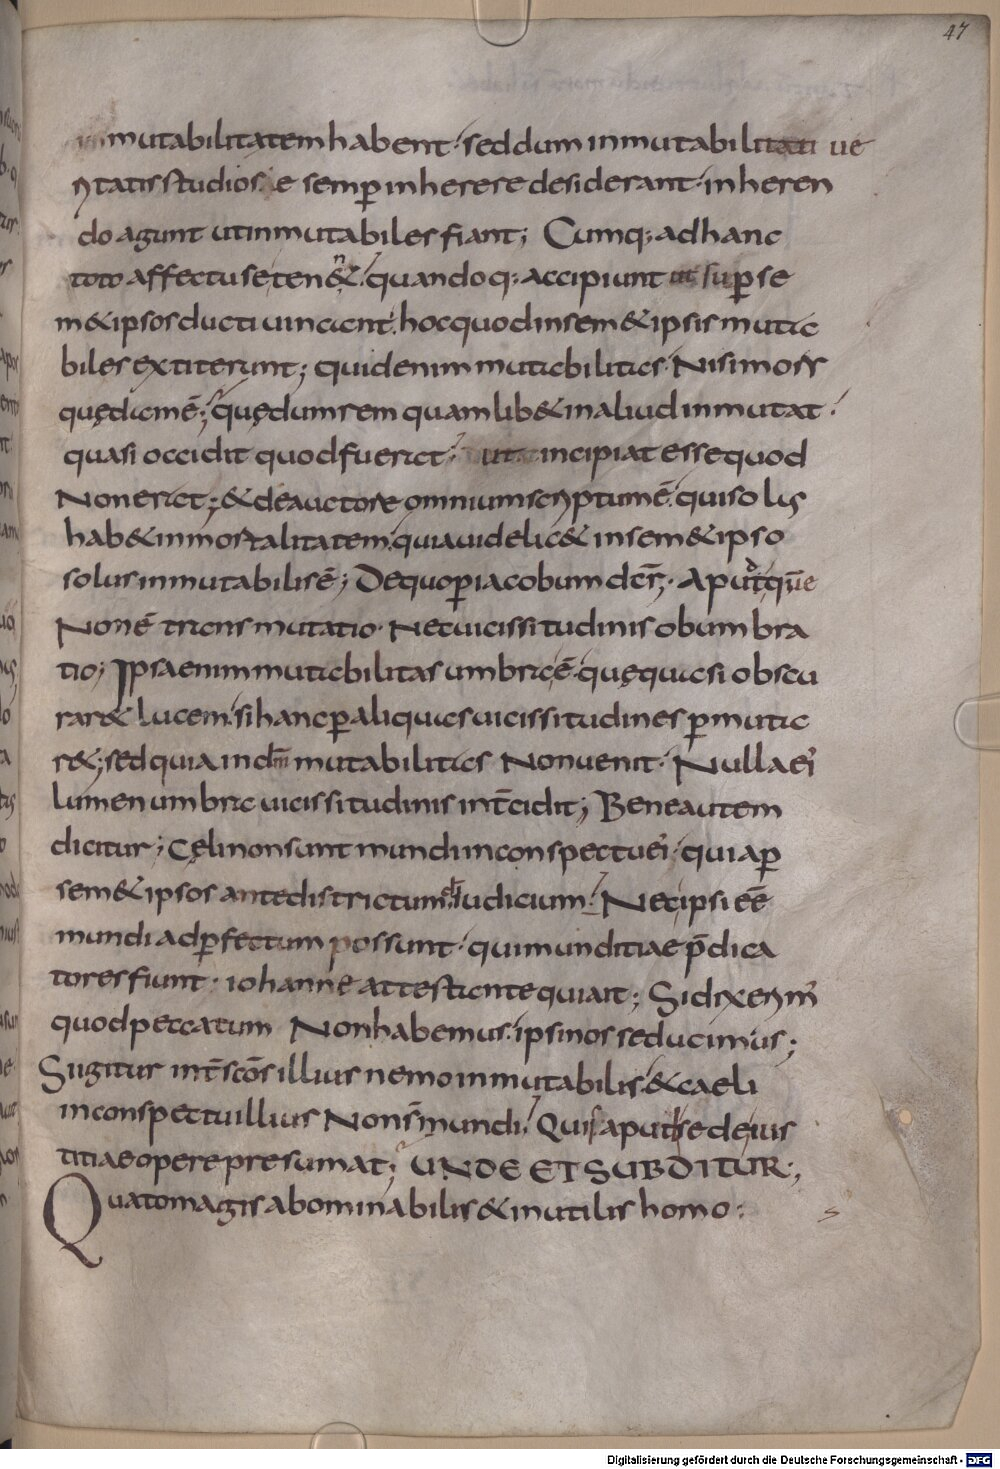 47
inmutabilitatem habent · sed dum inmutabilitati ue
ritatis studiose semp̲ inherere desiderant · inheren
do agunt ut inmutabiles fiant; Cumq; ad hanc
toto affectu se ten&ⁿ · quandoq; accipiunt ut sup̲ se
m&ipsos ducti uincant · hoc quod in sem&ipsis muta
biles extiterunt; quid enim mutabilitas · Nisi mors
quędam ē; quę dum rem quamlib& in aliud inmutat ·
quasi occidit quod fuerat · ut incipiat esse quod
Non erat; & de auctore omnium scriptum ē · qui solus
hab& inmortalitatem · quia uidelic& in sem&ipso
solus inmutabilis ē; De quo p̲ iacobum dr̄; · Aput quē
Non ē transmutatio · Nec uicissitudinis obumbra
tio; Ipsa enim mutabilitas umbra ē · quę quasi obscu
rar& lucem · si hanc p̲ aliquas uicissitudines p̲muta
r&; sed quia in dm̄ mutabilitas Non uenit · Nulla ei'
lumen umbra uicissitudinis int̄cidit; Bene autem
dicitur; Cęli non sunt mundi in conspectu ei' · quia p̲
sem&ipsos ante districtum di iudicium · Nec ipsi eē
mundi ad p̲fectum possunt · qui munditiae p̄dica
tores fiunt · iohanne attestante qui ait; Si dixerim'
quod peccatum Non habemus · ipsi nos seducimus;
Si igitur int̄ sc̄os illius nemo inmutabilis · & caeli
in conspectu illius Non s̄ mundi · Quis aput se de ius
titiae opere presumat; UNDE ET SUBDITUR;
Quanto magis abominabilis & inutilis homo ·
Digitalisierung gefördert durch die Deutsche Forschungsgemeinschaft - DFG